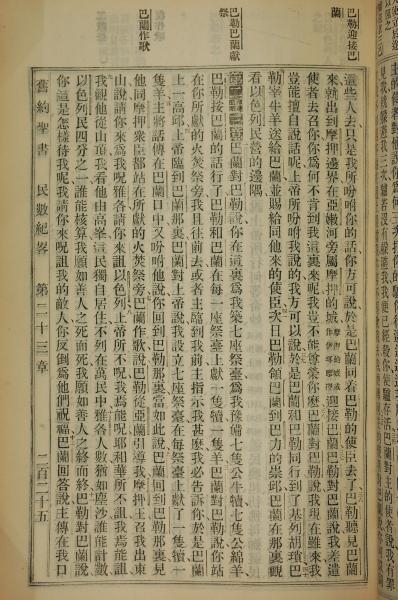 巴勒迎接巴
蘭
巴勒巴蘭獻
祭
巴蘭作歌
這些人去只是我所吩咐你的話你方可說於是巴蘭同着巴勒的使臣去了巴勒聽見巴蘭
來就出到摩押邊界在亞嫩河旁屬摩押的城迎接巴蘭巴勒對巴蘭說我差遣
使者去召你你爲何不肯到我這裏來呢我豈不能尊榮你麽巴蘭對巴勒說我現在雖來我
豈能擅自說話呢上帝所吩咐我說的我方可以說於是巴蘭和巴勒同行到了基列胡瑣巴
勒宰牛羊送給巴蘭並賜給同他來的使臣次日巴勒領巴蘭到巴力的崇邱巴蘭在那裏觀
看以色列民營的邊隅
巴蘭對巴勒說你在這裏爲我築七座祭臺爲我豫備七隻公牛犢七隻公綿羊
巴勒按巴蘭的話行了巴勒和巴蘭在每一座祭臺上獻一隻犢一隻羊巴蘭對巴勒說你站
在你所獻的火焚祭旁我且往前去或者主臨到我前主指示我甚麽我必告訴你於是巴蘭
上一高邱上帝臨到巴蘭那裏巴蘭對上帝說我設立七座祭臺在每祭臺上獻了一隻犢一
隻羊主將話傳在巴蘭口中又吩咐他說你回到巴勒那裏當如此說巴蘭回到巴勒那裏見
他同摩押衆臣都站在所獻的火焚祭旁巴蘭作歌說巴勒從亞蘭引導我摩押王召我出東
山說請你來爲我呪雅各請你來詛以色列上帝所不呪我焉能呪耶和華所不詛我焉能詛
我觀他從山頂我看他由高峯這民獨自居住不列在萬民中雅各人數猶如塵沙誰能計數
以色列民四分之一誰能核算我願如善人之死而死我願如善人之終而終巴勒對巴蘭說
你這是怎樣待我呢我請你來呪詛我的敵人你反倒爲他們祝福巴蘭回答說主傳在我口
舊約聖書 民數紀畧 第二十三章 二百二十五